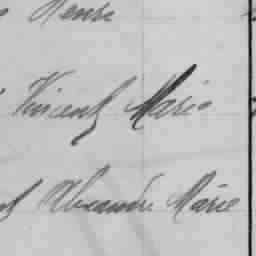 Henri
Vincent Marie
Alexandre Marie